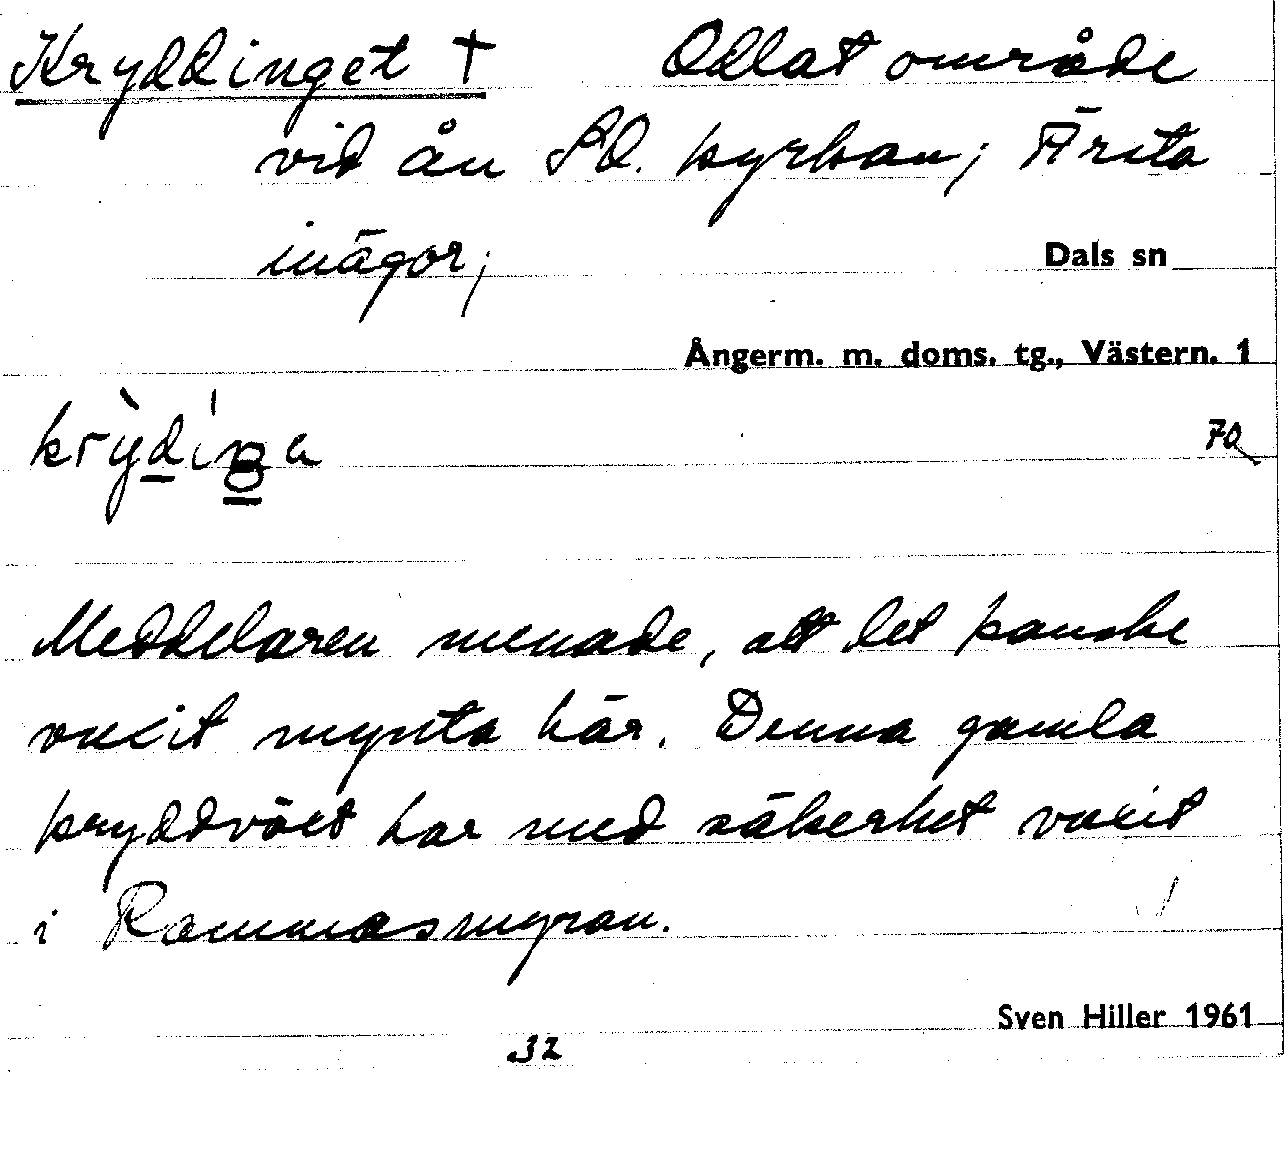 Kryddinget † Odlat område
vid ån SO. kyrkan; Ärsta
inägor;
Dals sn
Ångerm. m. doms. tg., Västern. 1
70
Meddelaren menade, att det kanske
vuxit mynta här. Denna gamla
kryddväxt har med säkerhet vuxit
i Rammasmyran.
Sven Hiller 1961
32